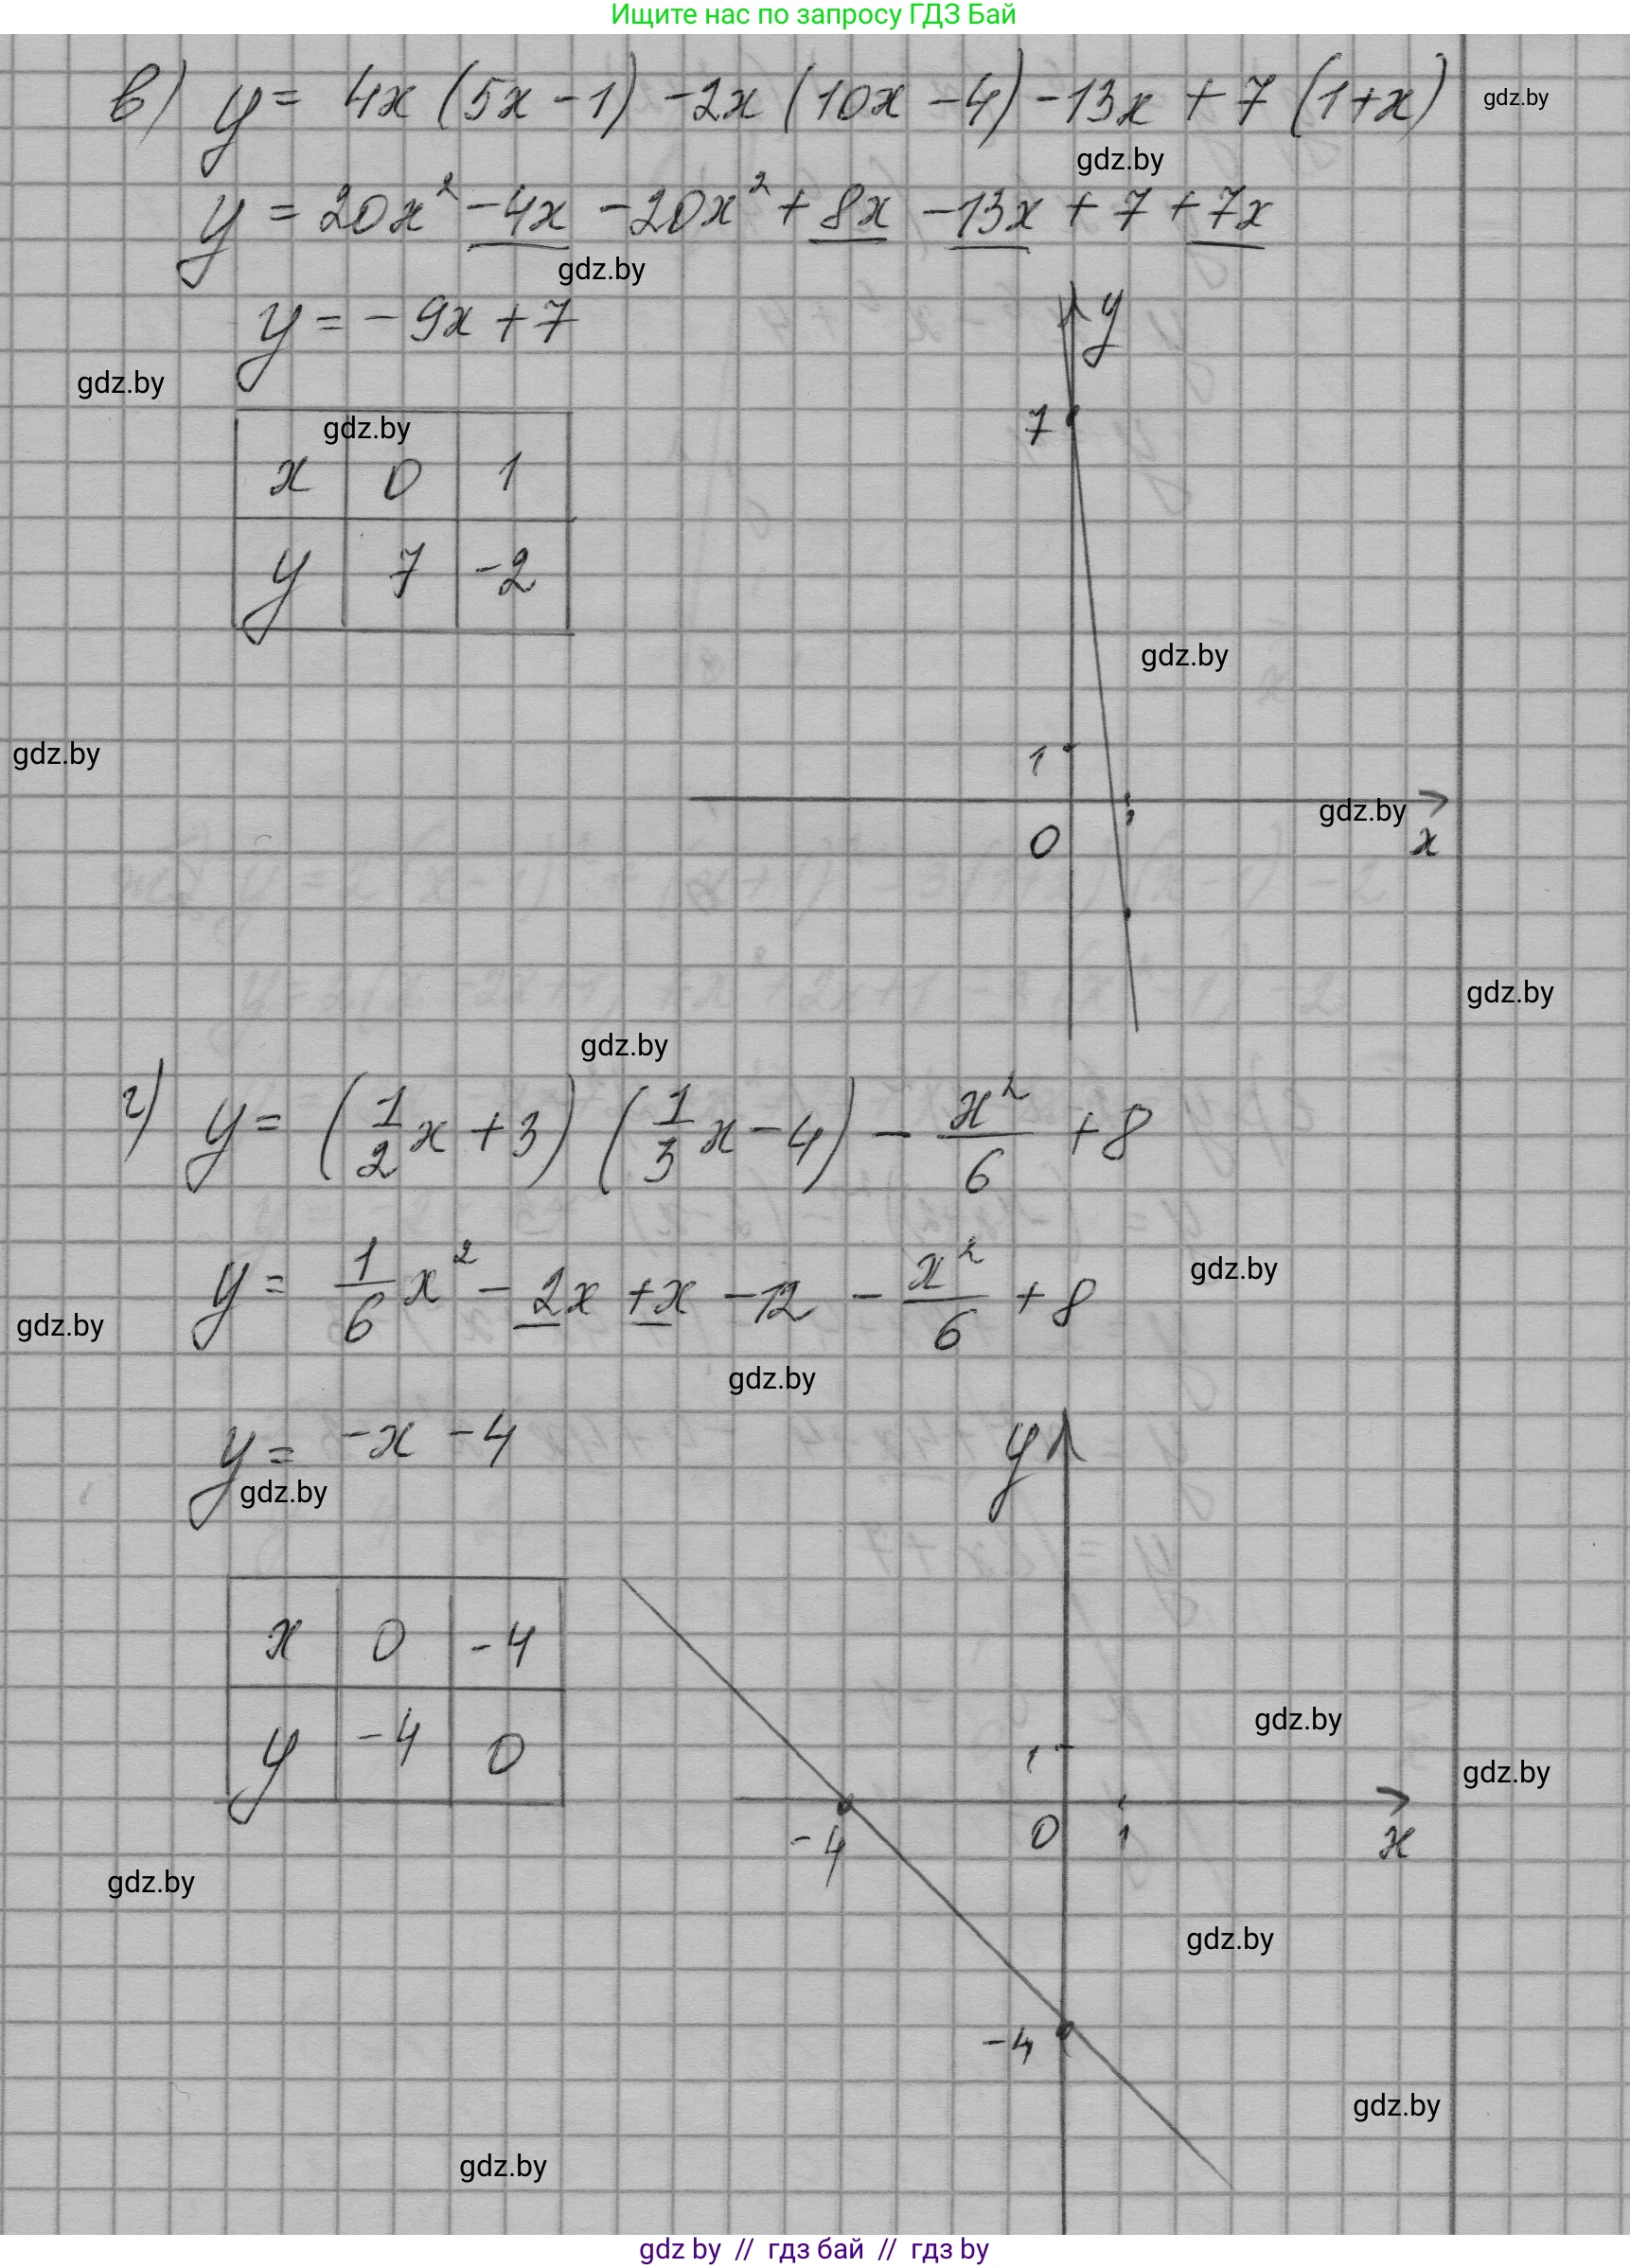 Ищите нас по запросу ГДЗ Бай
в) y = 4x (5x - 1) - 2x (10x - 4) - 13x + 7 (1+x)
gdz.by
gdz.by
y = 20x² - 4x - 20x² + 8x - 13x + 7 + 7x
gdz.by
y = - 9x + 7
y
gdz.by
7
gdz.by
x 0 1
y 7 -2
gdz.by
gdz.by
1
gdz.by
0 1 x
gdz.by
gdz.by
г) y = (1/2 x + 3) (1/3 x - 4) - x²/6 + 8
y = 1/6 x² - 2x + x - 12 - x²/6 + 8
gdz.by
gdz.by
gdz.by
y = -x - 4
y
gdz.by
x 0 -4
y -4 0
gdz.by
1
gdz.by
-4 0 1 x
gdz.by
gdz.by
-4
gdz.by
gdz.by
gdz by // гдз бай // гдз by